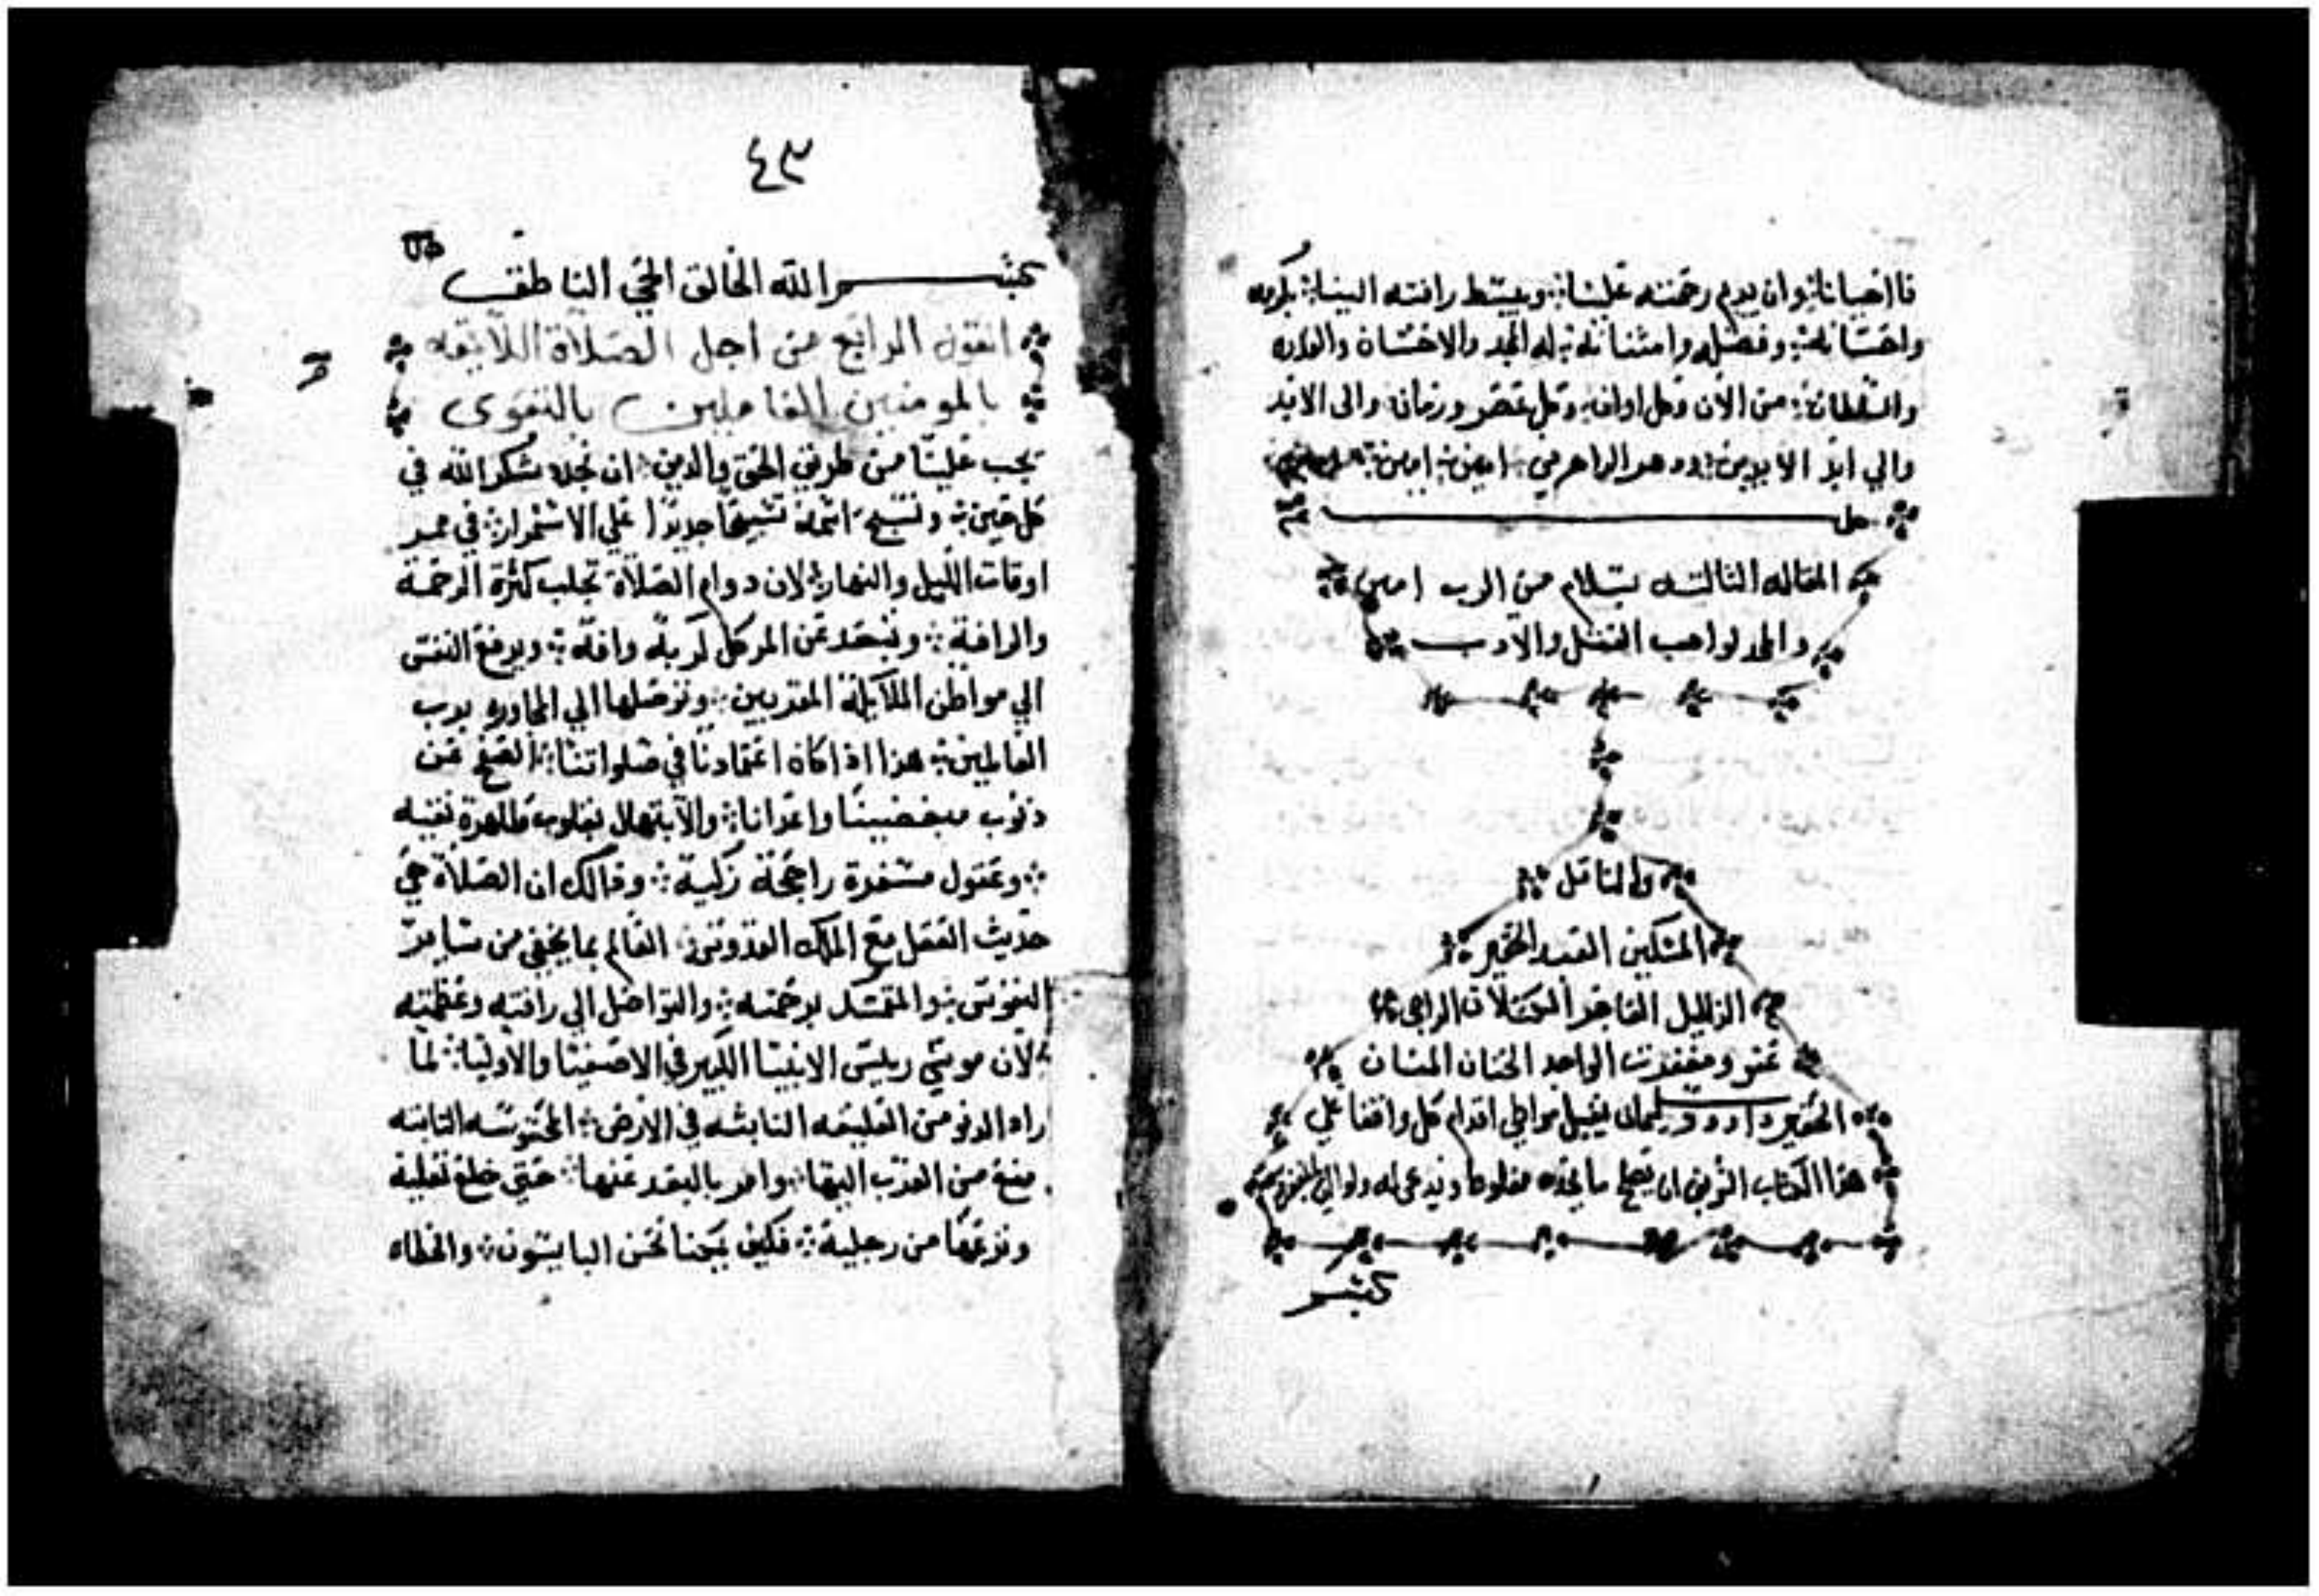 وان يديم رحمته علينا؛ ويبسط رافته الينا؛ بكرمه
واحسانه؛ وفضله وامتنانه؛ له المجد والاحسان والقدره
والسلطان؛ من الان وكل اوان؛ وكل عصر وزمان؛ والى الابد
والي ابد الابدين؛ ودهر الداهرين؛ امين؛ امين؛
المقاله الثالثه بسلام من الرب امين
والمجد لواهب العقل والادب
والناقل
المسكين العبد الحقير
الذليل الراجي
عفو ومغفرت الواحد الحنان المنان
الحقير داوود سليمان يقبل مواطي اقدام كل واقفا علي
هذا الكتاب ان يصلح ما يجده مغلوطا ويدعي له
بسم
٤٣
بسم الله الخالق الحي الناطق
القول الرابع من اجل الصلاة اللايقه
بالمومنين العاملين بالتقوى
يجب علينا من طريق الحق والدين؛ ان نجدد شكر الله في
كل حين؛ ونسبح اسمه تسبيحًا جديدًا علي الاستمرار؛ في ممر
اوقات الليل والنهار؛ لان دوام الصلاة تجلب كثرة الرحمة
والرافة؛ وتبعد عن المر كل كربة وافة؛ ويرفع النفس
الي مواطن الملايكة المقربين؛ وتوصلها الي المحاوره برب
العالمين؛ هذا اذا كان اعتمادنا في صلواتنا؛ الصفح عن
ذنوب مبغضينا واعدانا؛ والابتهال بقلوب طاهرة نقيه
؛ وعقول مسفرة راجحة زكية؛ وذالك ان الصلاة هي
حديث العقل مع الملك القدوس؛ العالم بما يخفي من سراير
النفوس؛ والتمسك برحمته؛ والتواصل الي رافته وعظمته
لان موسي رييس الانبيا الكبير في الاصفيا والاوليا؛ لما
راد الدنو من العليقه النابته في الارض؛ المحسوسه الثابته
منع من القرب اليها؛ وامر بالبعد عنها؛ حتي خلع نعلية
ونزعها من رجلية؛ فكيف يمكننا نحن البايسون؛ والخطاه